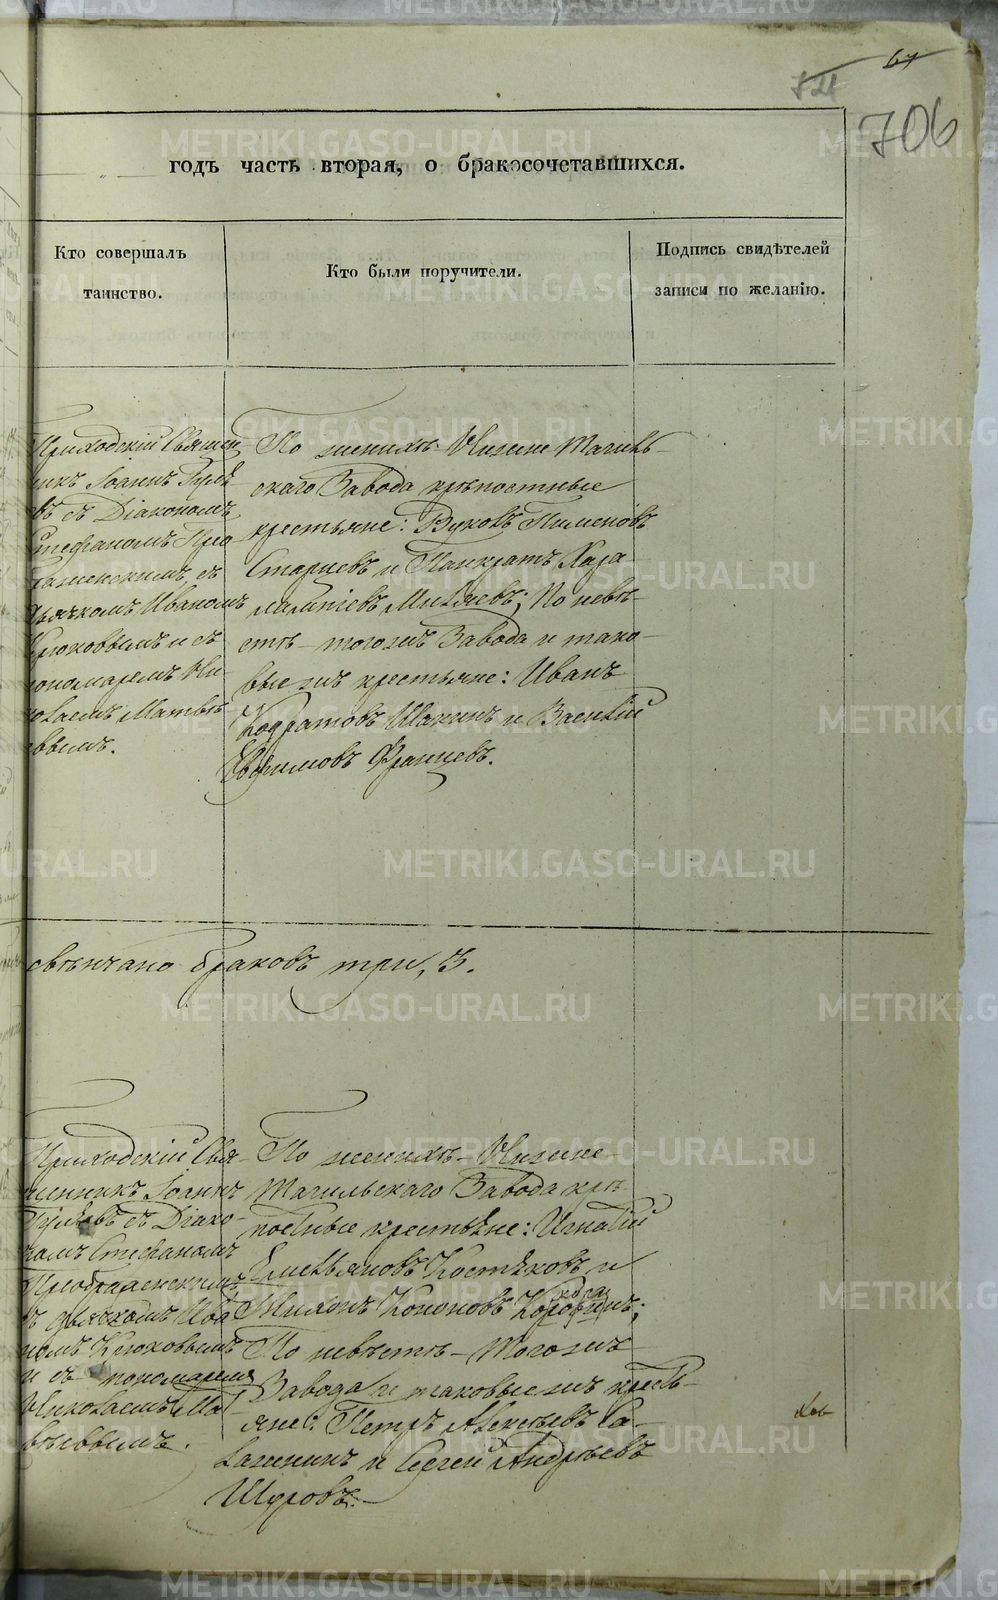 67
721
706
годъ часть вторая, о бракосочетавшихся.
Кто совершалъ
таинство.
Кто были поручители.
Подпись свидѣтелей
записи по желанію.
Приходскій Священ
никъ Іоаннъ
въ съ Діакономъ
Стефаномъ Прео
браженскимъ, съ
дьячкомъ Иваномъ
Крюковымъ и съ
пономаремъ Ни
колаемъ Матвѣ
евымъ.
По женихѣ – Нижне Тагиль-
скаго Завода крѣпостные
крестьяне: Вуколъ Пименовъ
Старцевъ и Панкратъ Хара
лампіевъ Митяевъ; По невѣ-
стѣ – тогожъ Завода и тако-
выежъ крестьяне: Иванъ
Кодратовъ Шахинъ и Василій
Евфимовъ Францевъ.
свѣнчано браковъ три, 3.
Приходскій Свя-
щенникъ Іоаннъ
съ Діако-
номъ Стефаномъ
Преображенскимъ
съ дьячкомъ Ива
номъ Крюковымъ
и съ пономаремъ
Николаемъ Мат
вѣевымъ.
По женихѣ – Нижне
Тагильскаго Завода крѣ
постные крестьяне: Игнатій
Емельяновъ Костяковъ и
Тихонъ Кононовъ
По невѣстѣ – Тогожъ
Завода и таковыежъ кресть-
яне: Петръ Алексѣевъ Са-
лагинкъ и Сергей Андреевъ
Щуровъ.
METRIKI.GASO-URAL.RU